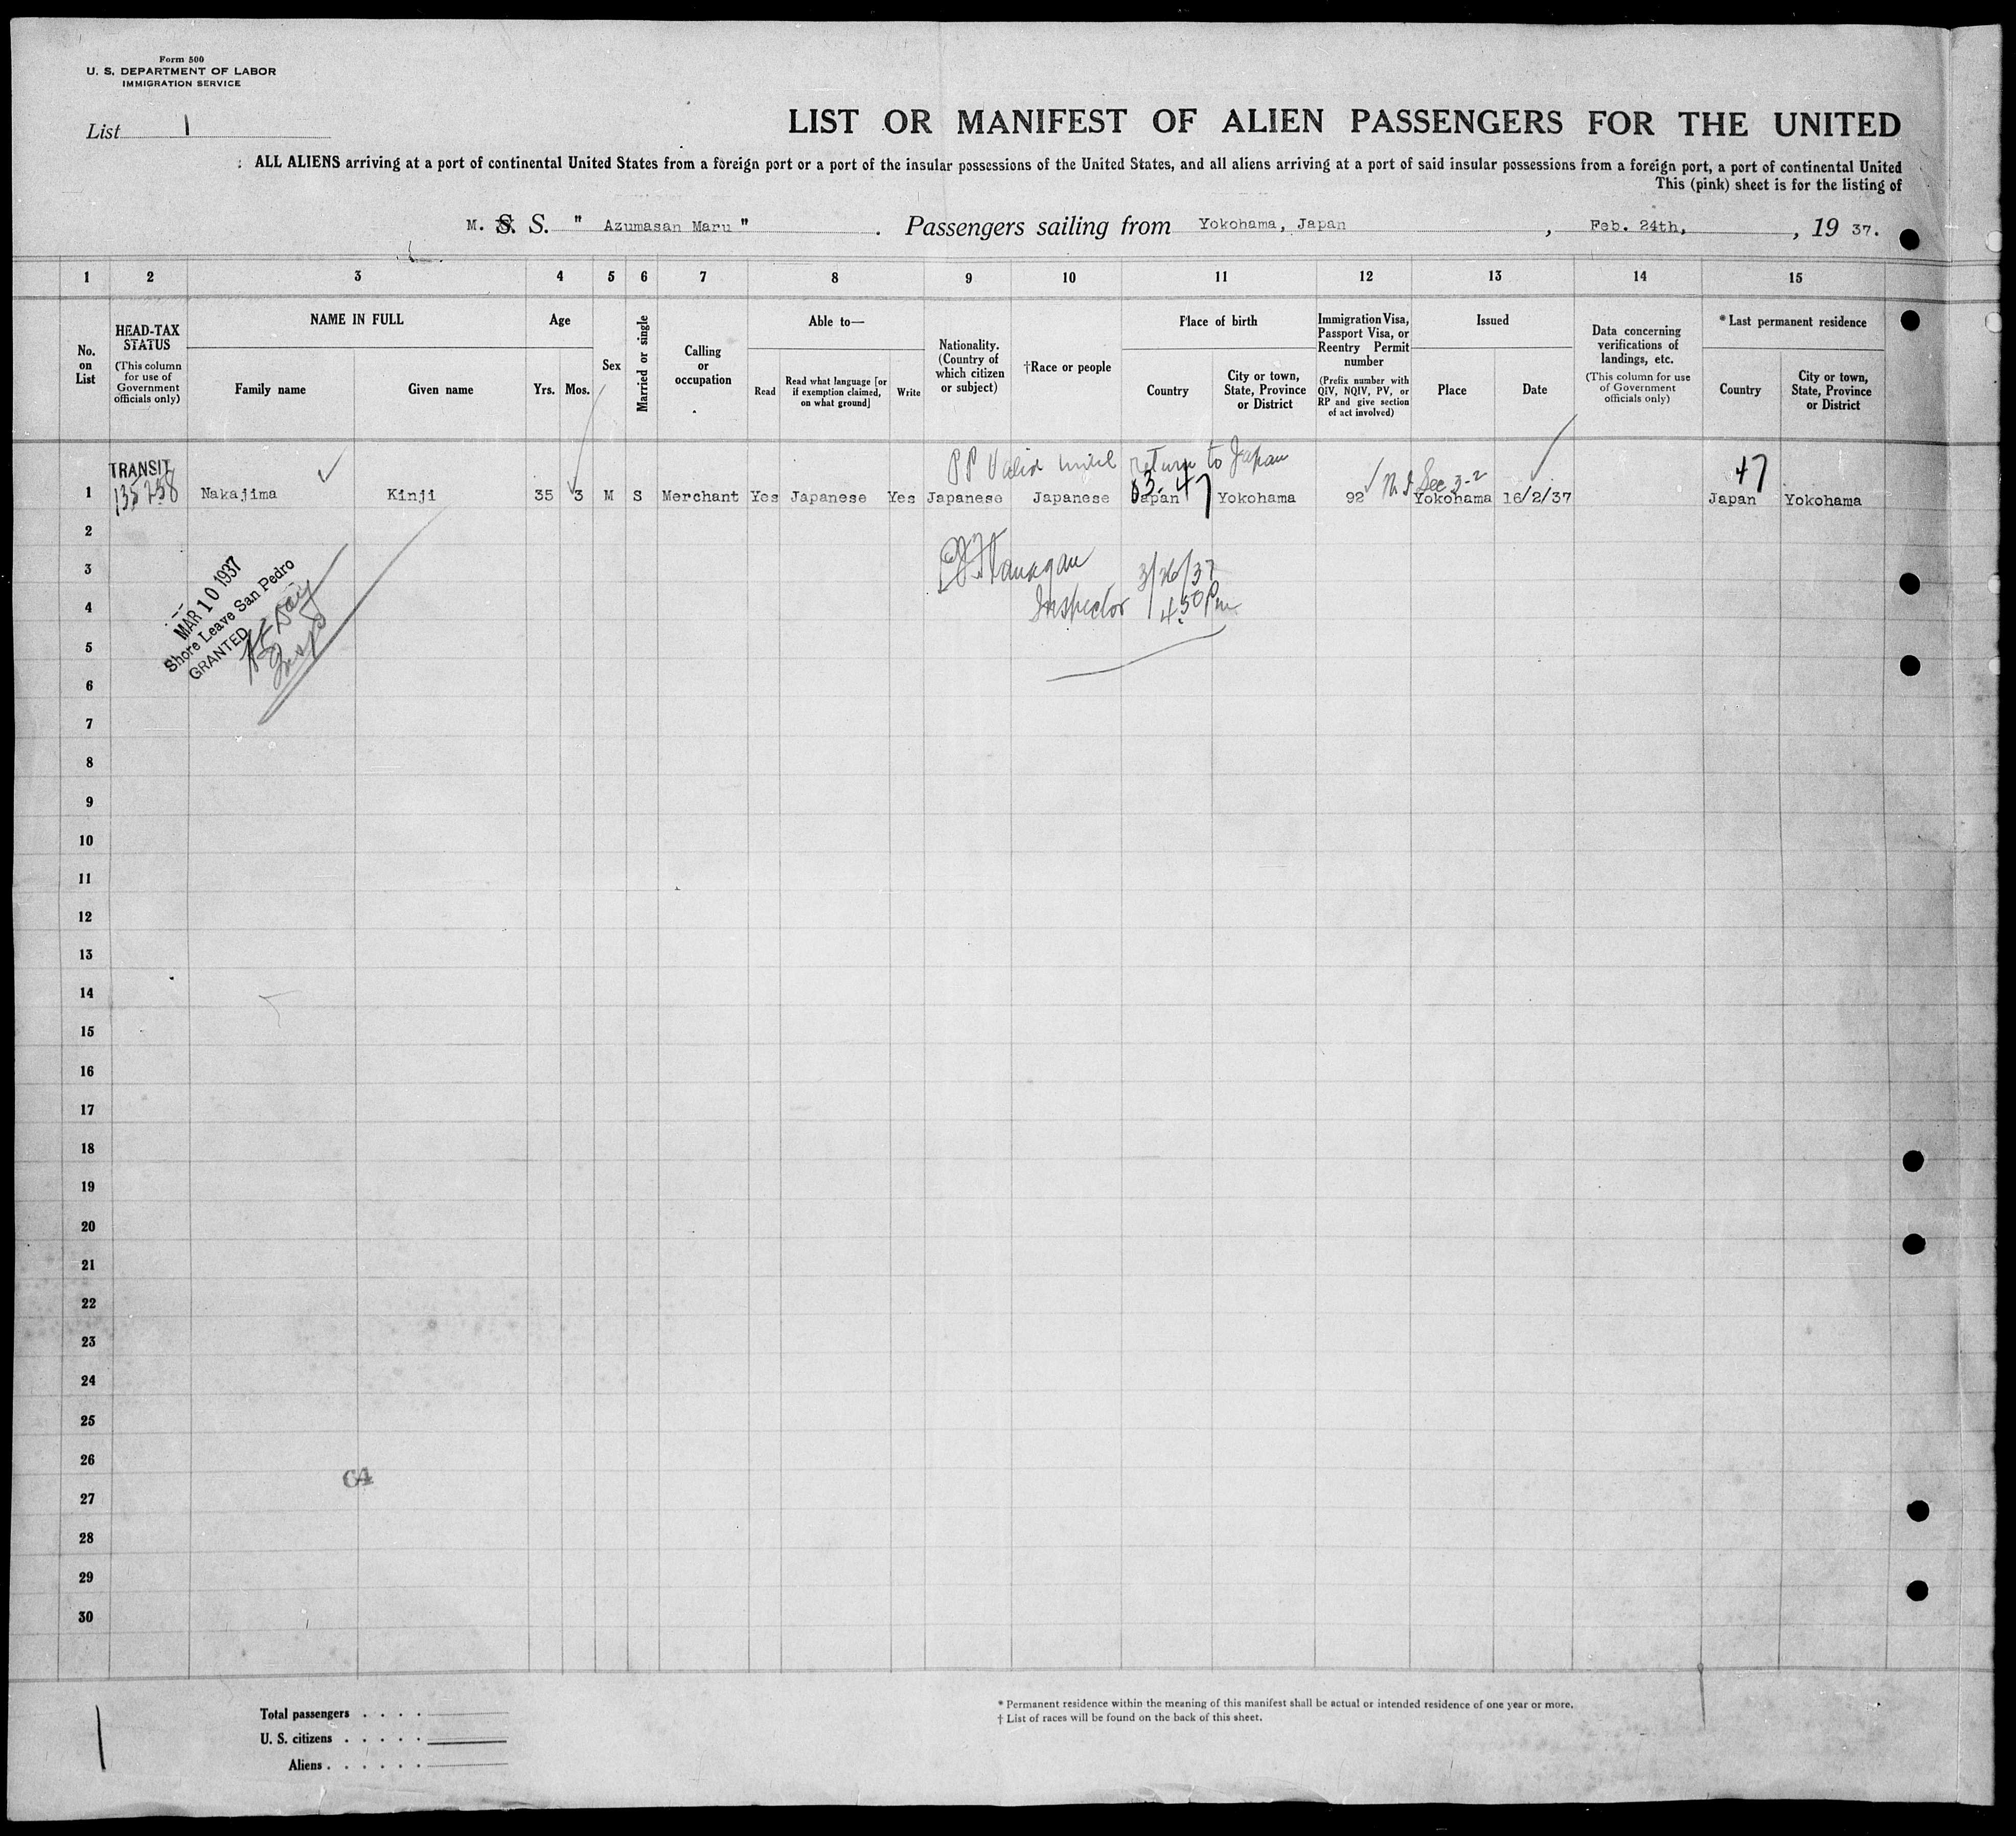 Form 500
U. S. DEPARTMENT OF LABOR
IMMIGRATION SERVICE
List 1
LIST OR MANIFEST OF ALIEN PASSENGERS FOR THE UNITED
ALL ALIENS arriving at a port of continental United States from a foreign port or a port of the insular possessions of the United States, and all aliens arriving at a port of said insular possessions from a foreign port, a port of continental United
This (pink) sheet is for the listing of
M. S. S. " Azumasan Maru " . Passengers sailing from Yokohama, Japan , Feb. 24th, , 19 37.
1 2 3 4 5 6 7 8 9 10 11 12 13 14 15
No. on List
HEAD-TAX STATUS
(This column for use of Government officials only)
NAME IN FULL
Family name
Given name
Age
Yrs. Mos.
Sex
Married or single
Calling or occupation
Able to—
Read
Read what language [or if exemption claimed, on what ground]
Write
Nationality. (Country of which citizen or subject)
†Race or people
Place of birth
Country
City or town, State, Province or District
Immigration Visa, Passport Visa, or Reentry Permit number
(Prefix number with QIV, NQIV, PV, or RP and give section of act involved)
Issued
Place
Date
Data concerning verifications of landings, etc.
(This column for use of Government officials only)
* Last permanent residence
Country
City or town, State, Province or District
PP Valid until return to Japan
TRANSIT
47
Sec 3-2
1 Nakajima Kinji 35 3 M S Merchant Yes Japanese Yes Japanese Japanese Japan Yokohama 92 Yokohama 16/2/37 Japan Yokohama
2
3
4
5
6
7
8
9
10
11
12
13
14
15
16
17
18
19
20
21
22
23
24
25
26
27
28
29
30
MAR 10 1937
Shore Leave San Pedro
GRANTED
3/26/37
Inspector 4:50 Pm
64
1
Total passengers . . . .
U. S. citizens . . . . .
Aliens . . . . . .
* Permanent residence within the meaning of this manifest shall be actual or intended residence of one year or more.
† List of races will be found on the back of this sheet.